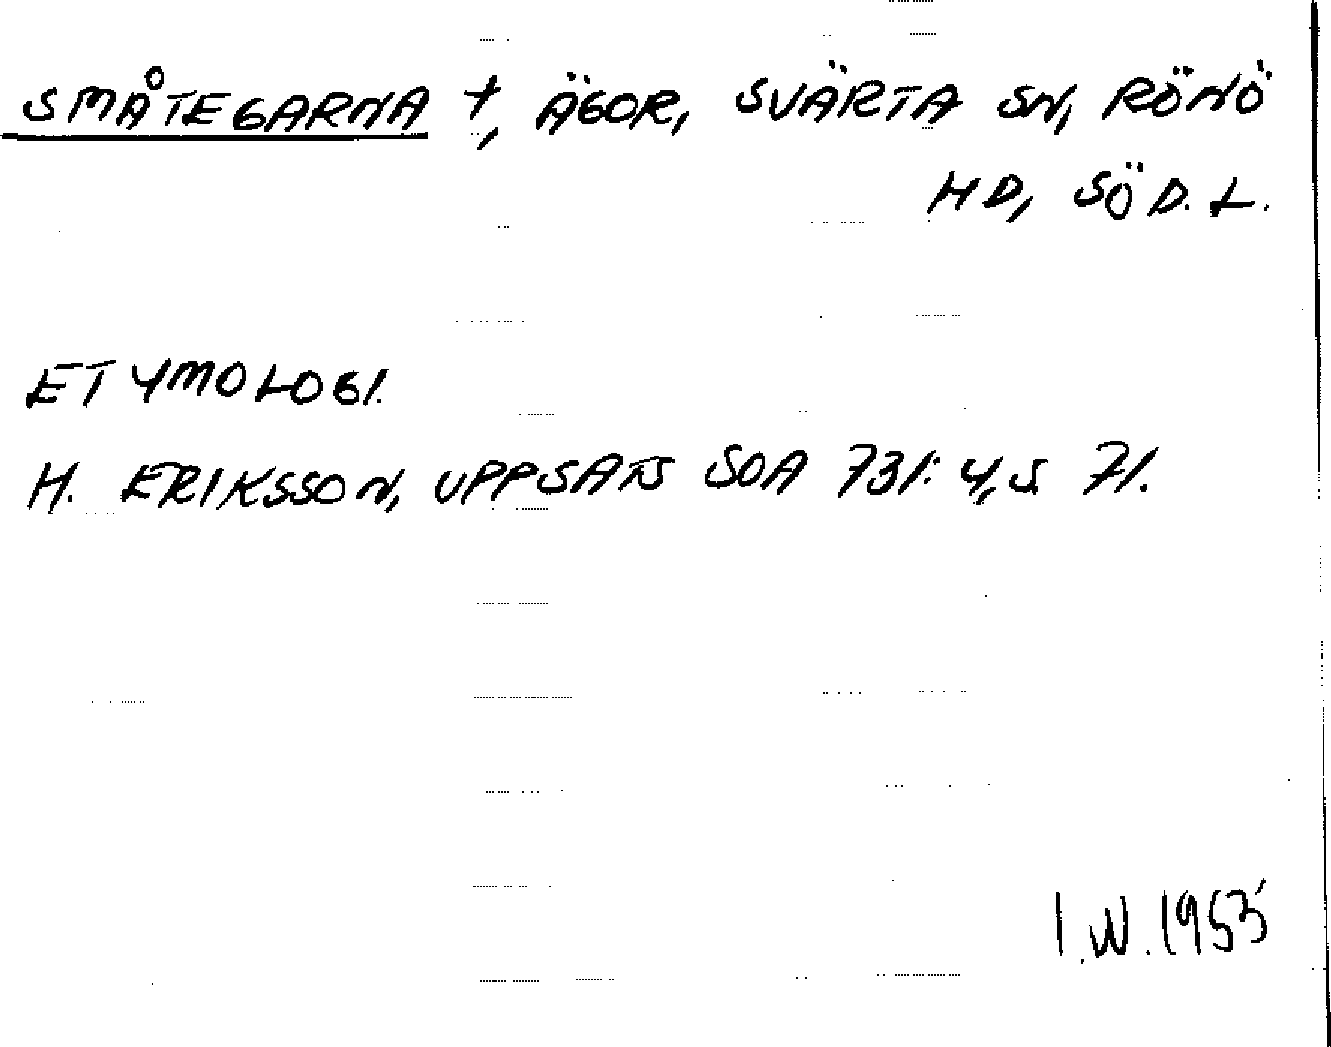 SMÅTEGARNA †, ÄGOR, SVÄRTA SN, RÖNÖ
HD, SÖD. L.
ETYMOLOGI.
H. ERIKSSON, UPPSATS SOA 731:4, S. 71.
I.W. 1953